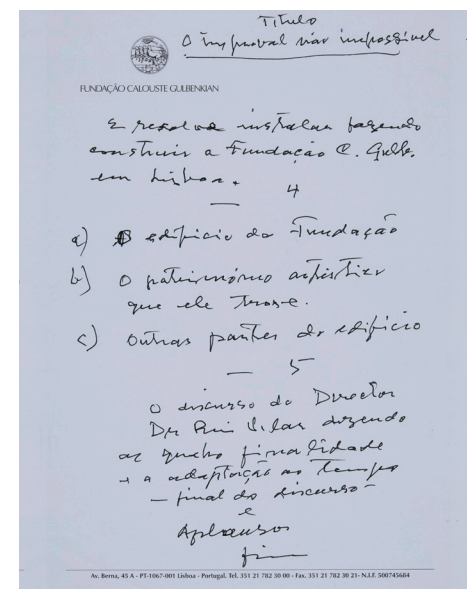 Titulo
O improvavel não impossivel
FUNDAÇÃO CALOUSTE GULBENKIAN
E resolve instalar fazendo
construir a Fundação C. Gulb.
em Lisboa.
4
a) O edificio da Fundação
b) O património artistico
que ele trouxe.
c) Outras partes do edificio
— 5
O discurso do Director
Dr Rui Vilar dizendo
as quatro finalidade
e a adaptação ao tempo
– final do discurso –
e
Aplausos
fim
Av. Berna, 45 A - PT-1067-001 Lisboa - Portugal. Tel. 351 21 782 30 00 - Fax. 351 21 782 30 21- N.I.F. 500745684